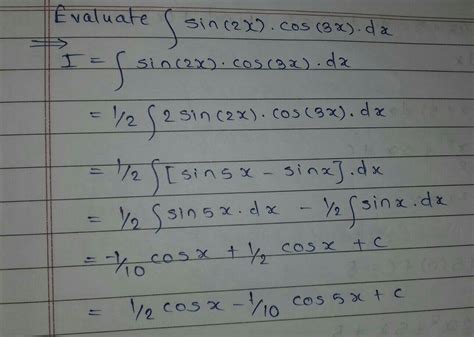 Evaluate ∫ sin(2x) · cos(3x) · dx
⇒ I = ∫ sin(2x) · cos(3x) · dx
= 1/2 ∫ 2 sin(2x) · cos(3x) · dx
= 1/2 ∫ [sin5x − sinx] · dx
= 1/2 ∫ sin5x · dx − 1/2 ∫ sinx · dx
= -1/10 cosx + 1/2 cosx + c
= 1/2 cosx − 1/10 cos5x + c